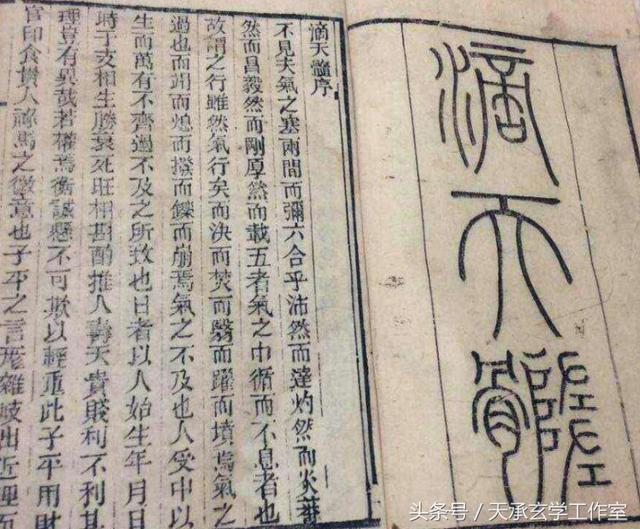 滴天髓
滴天髓序
不見夫氣之塞兩間而彌六合乎沛然而達灼然而炎蓊
然而昌毅然而剛厚然而載五者氣之中循而不息者也
故謂之行雖然氣行矣而決而焚而翳而躍而墳焉氣之
過也而涸而熄而撥而鑠而崩焉氣之不及也人受中以
生而萬有不齊過不及之所致也日者以人始生年月日
時干支相生勝衰死旺相斟酌推人壽夭貴賤利不利其
理豈有異哉若權焉衡誠懸不可欺以輕重此子平用財
官印食貴人祿馬之徽意也子平之言形雜岐出近理而
头条号/天承玄学工作室